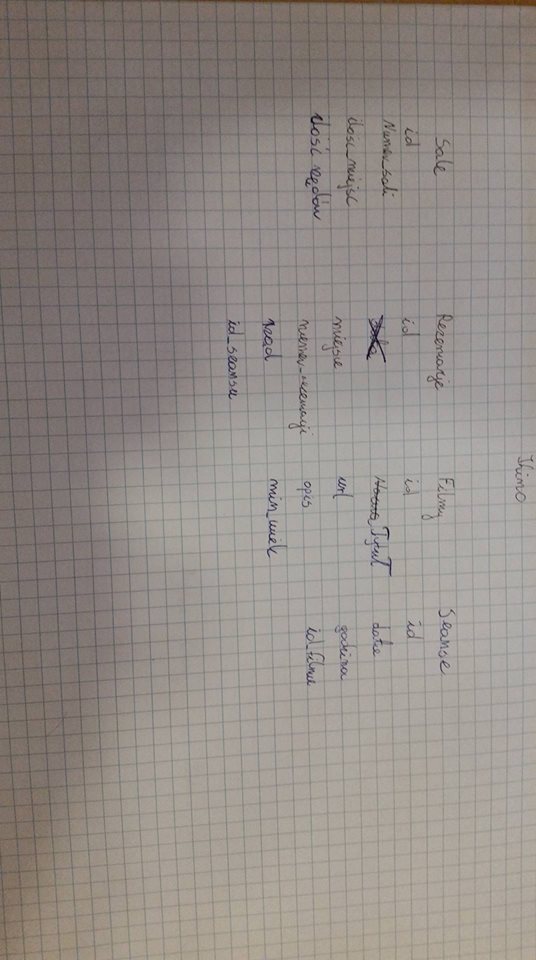 Kino
Sale
id
Numer_sali
ilość_miejsc
ilość rzędów
Rezerwacje
id
miejsce
numer_rezerwacji
rząd
id_seansu
Filmy
id
Nazwa Tytuł
url
opis
min_wiek
Seanse
id
data
godzina
id_filmu